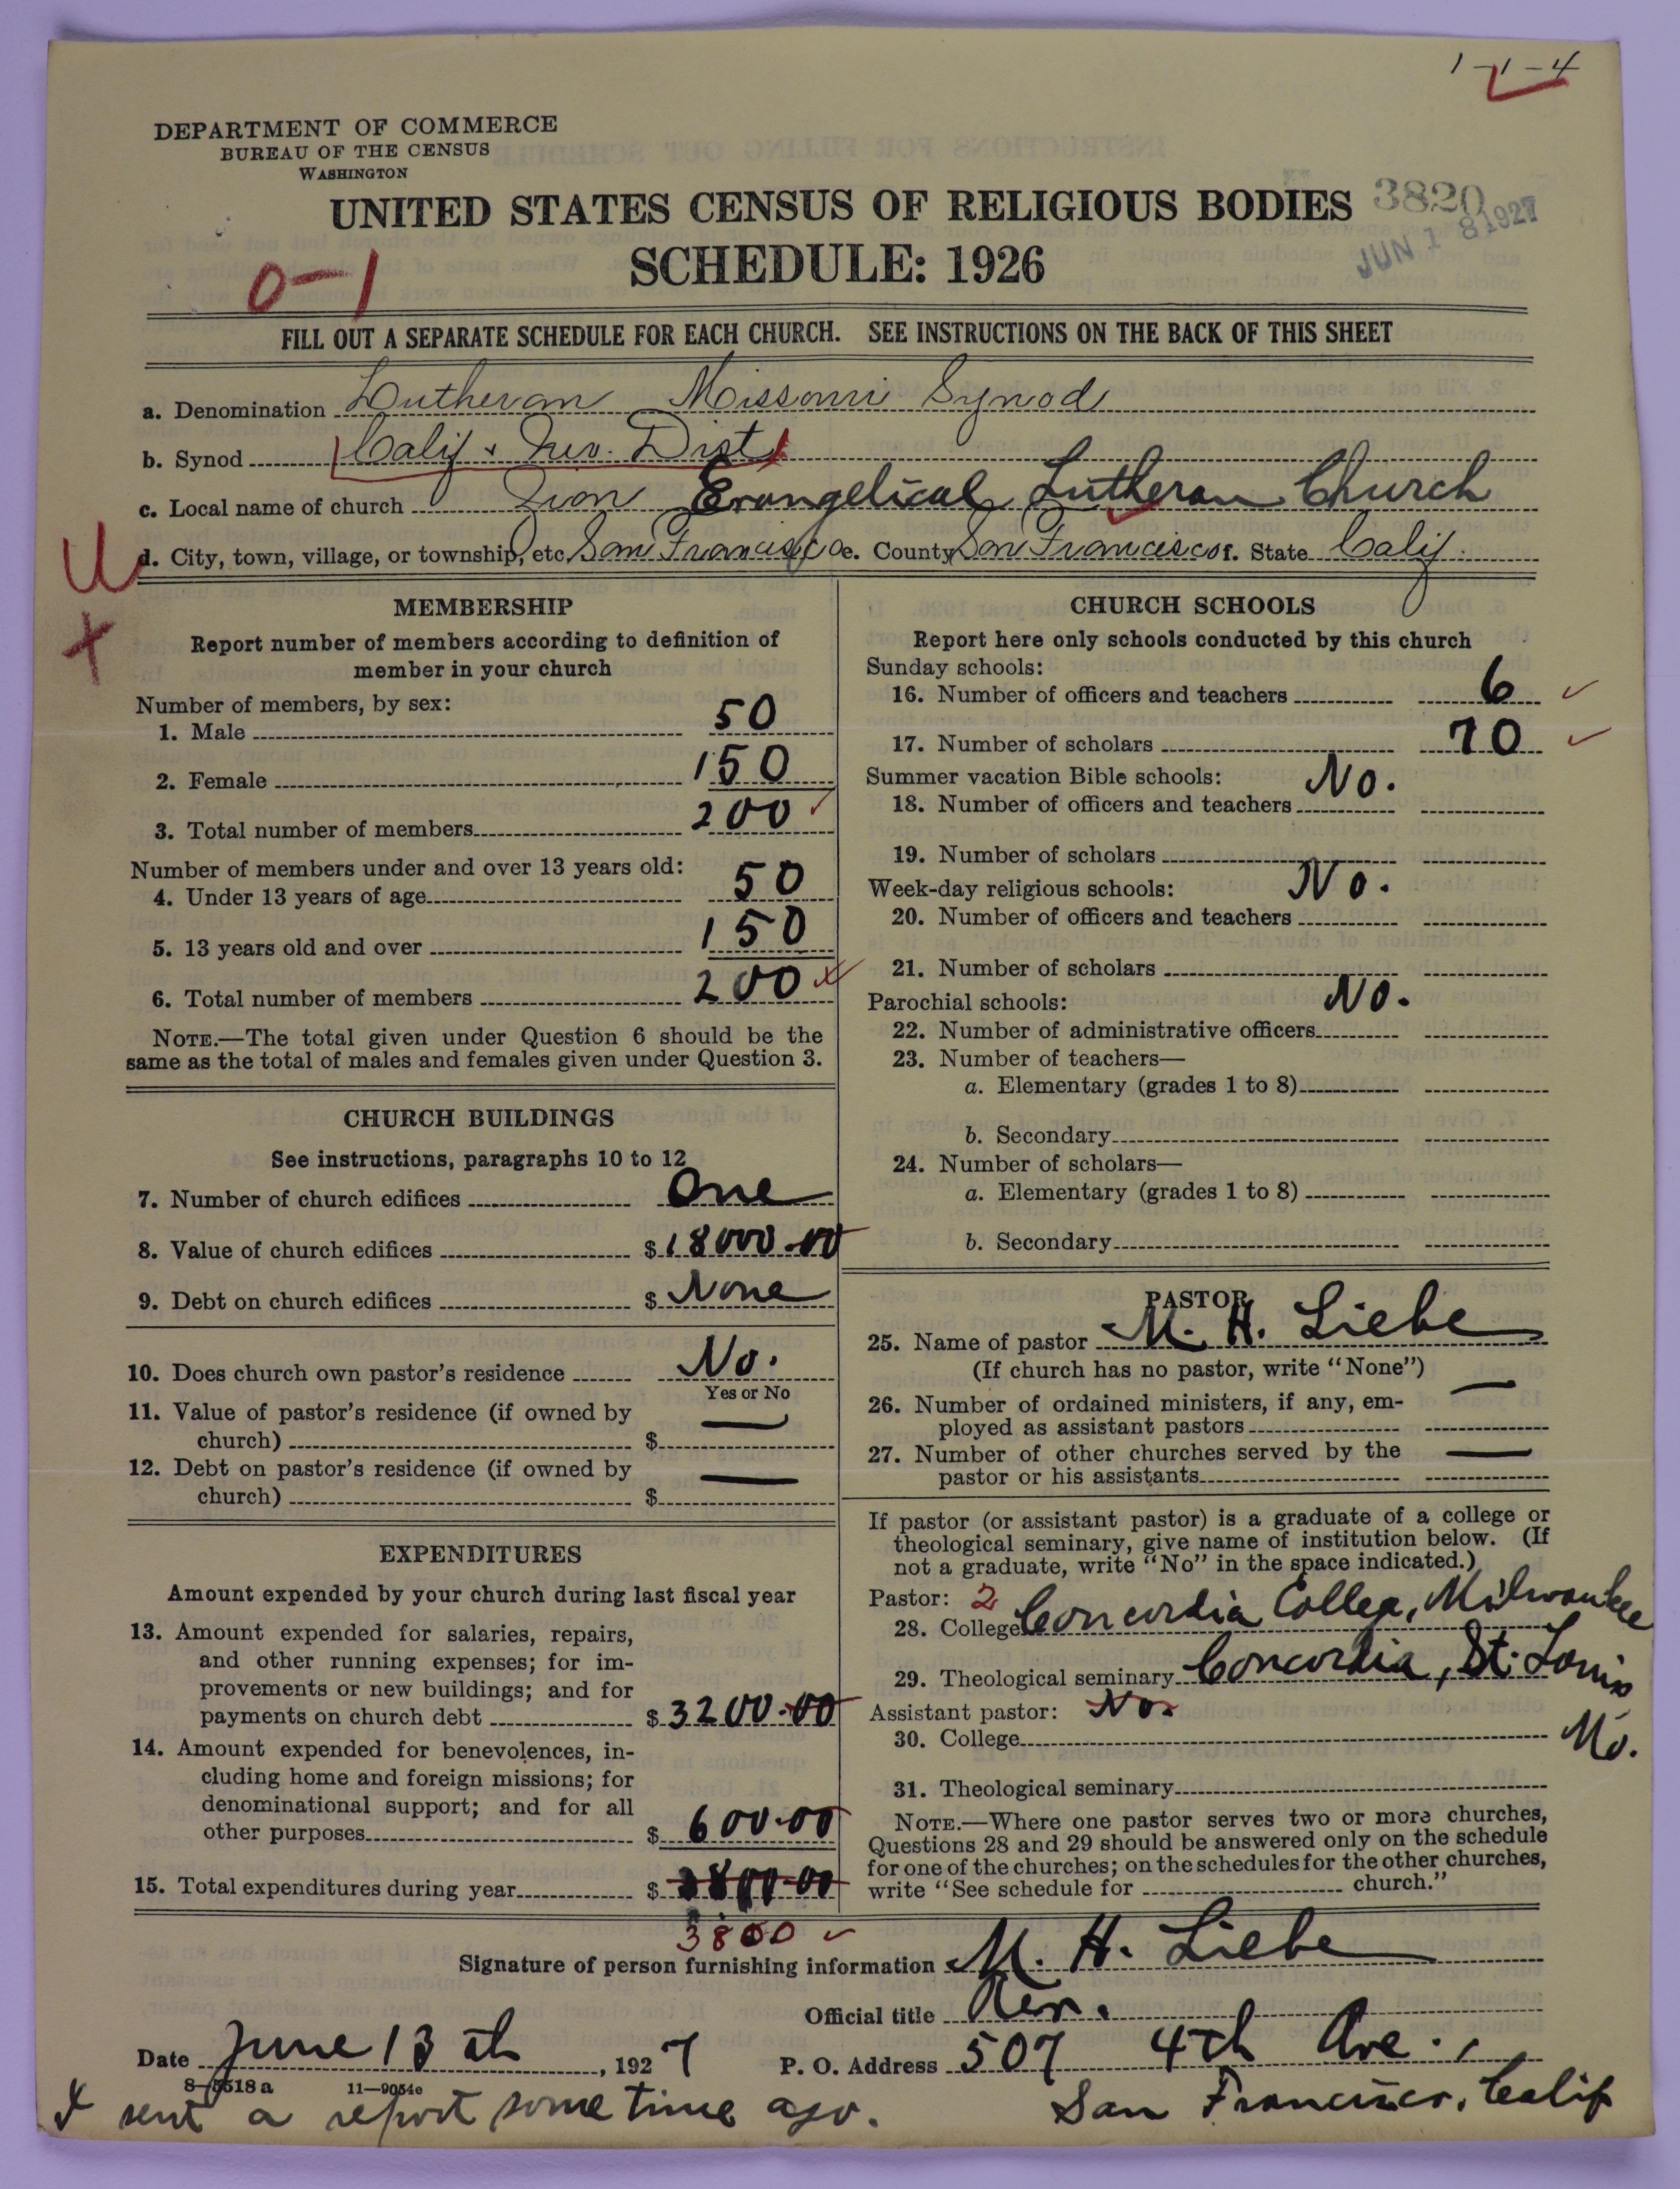 1-1-4
DEPARTMENT OF COMMERCE
BUREAU OF THE CENSUS
WASHINGTON
UNITED STATES CENSUS OF RELIGIOUS BODIES 3820
SCHEDULE: 1926
JUN 18 1927
0-1
FILL OUT A SEPARATE SCHEDULE FOR EACH CHURCH. SEE INSTRUCTIONS ON THE BACK OF THIS SHEET
a. Denomination Lutheran Missouri Synod
b. Synod Calif & Nev. Dist
c. Local name of church Zion Evangelical Lutheran Church
d. City, town, village, or township, etc. San Francisco e. County San Francisco f. State Calif.
MEMBERSHIP
Report number of members according to definition of
member in your church
Number of members, by sex:
1. Male 50
2. Female 150
3. Total number of members 200
Number of members under and over 13 years old:
4. Under 13 years of age 50
5. 13 years old and over 150
6. Total number of members 200
NOTE.—The total given under Question 6 should be the
same as the total of males and females given under Question 3.
CHURCH BUILDINGS
See instructions, paragraphs 10 to 12
7. Number of church edifices One
8. Value of church edifices $18000.00
9. Debt on church edifices $ None
10. Does church own pastor's residence No.
Yes or No
11. Value of pastor's residence (if owned by
church) $ —
12. Debt on pastor's residence (if owned by
church) $ —
EXPENDITURES
Amount expended by your church during last fiscal year
13. Amount expended for salaries, repairs,
and other running expenses; for im-
provements or new buildings; and for
payments on church debt $3200.00
14. Amount expended for benevolences, in-
cluding home and foreign missions; for
denominational support; and for all
other purposes $ 600.00
15. Total expenditures during year $ 3800.00
3800
CHURCH SCHOOLS
Report here only schools conducted by this church
Sunday schools:
16. Number of officers and teachers 6
17. Number of scholars 70
Summer vacation Bible schools: No.
18. Number of officers and teachers
19. Number of scholars
Week-day religious schools: No.
20. Number of officers and teachers
21. Number of scholars
Parochial schools: No.
22. Number of administrative officers
23. Number of teachers—
a. Elementary (grades 1 to 8)
b. Secondary
24. Number of scholars—
a. Elementary (grades 1 to 8)
b. Secondary
PASTOR
25. Name of pastor M. H. Liebe
(If church has no pastor, write "None")
26. Number of ordained ministers, if any, em-
ployed as assistant pastors —
27. Number of other churches served by the
pastor or his assistants —
If pastor (or assistant pastor) is a graduate of a college or
theological seminary, give name of institution below. (If
not a graduate, write "No" in the space indicated.)
Pastor: 2
28. College Concordia College, Milwaukee
29. Theological seminary Concordia, St. Louis
Mo.
Assistant pastor: No.
30. College
31. Theological seminary
NOTE.—Where one pastor serves two or more churches,
Questions 28 and 29 should be answered only on the schedule
for one of the churches; on the schedules for the other churches,
write "See schedule for church."
Signature of person furnishing information M. H. Liebe
Official title Rev.
Date June 13th, 1927 P. O. Address 507 4th Ave.,
San Francisco, Calif
8-5518a 11-9054e
I sent a report some time ago.